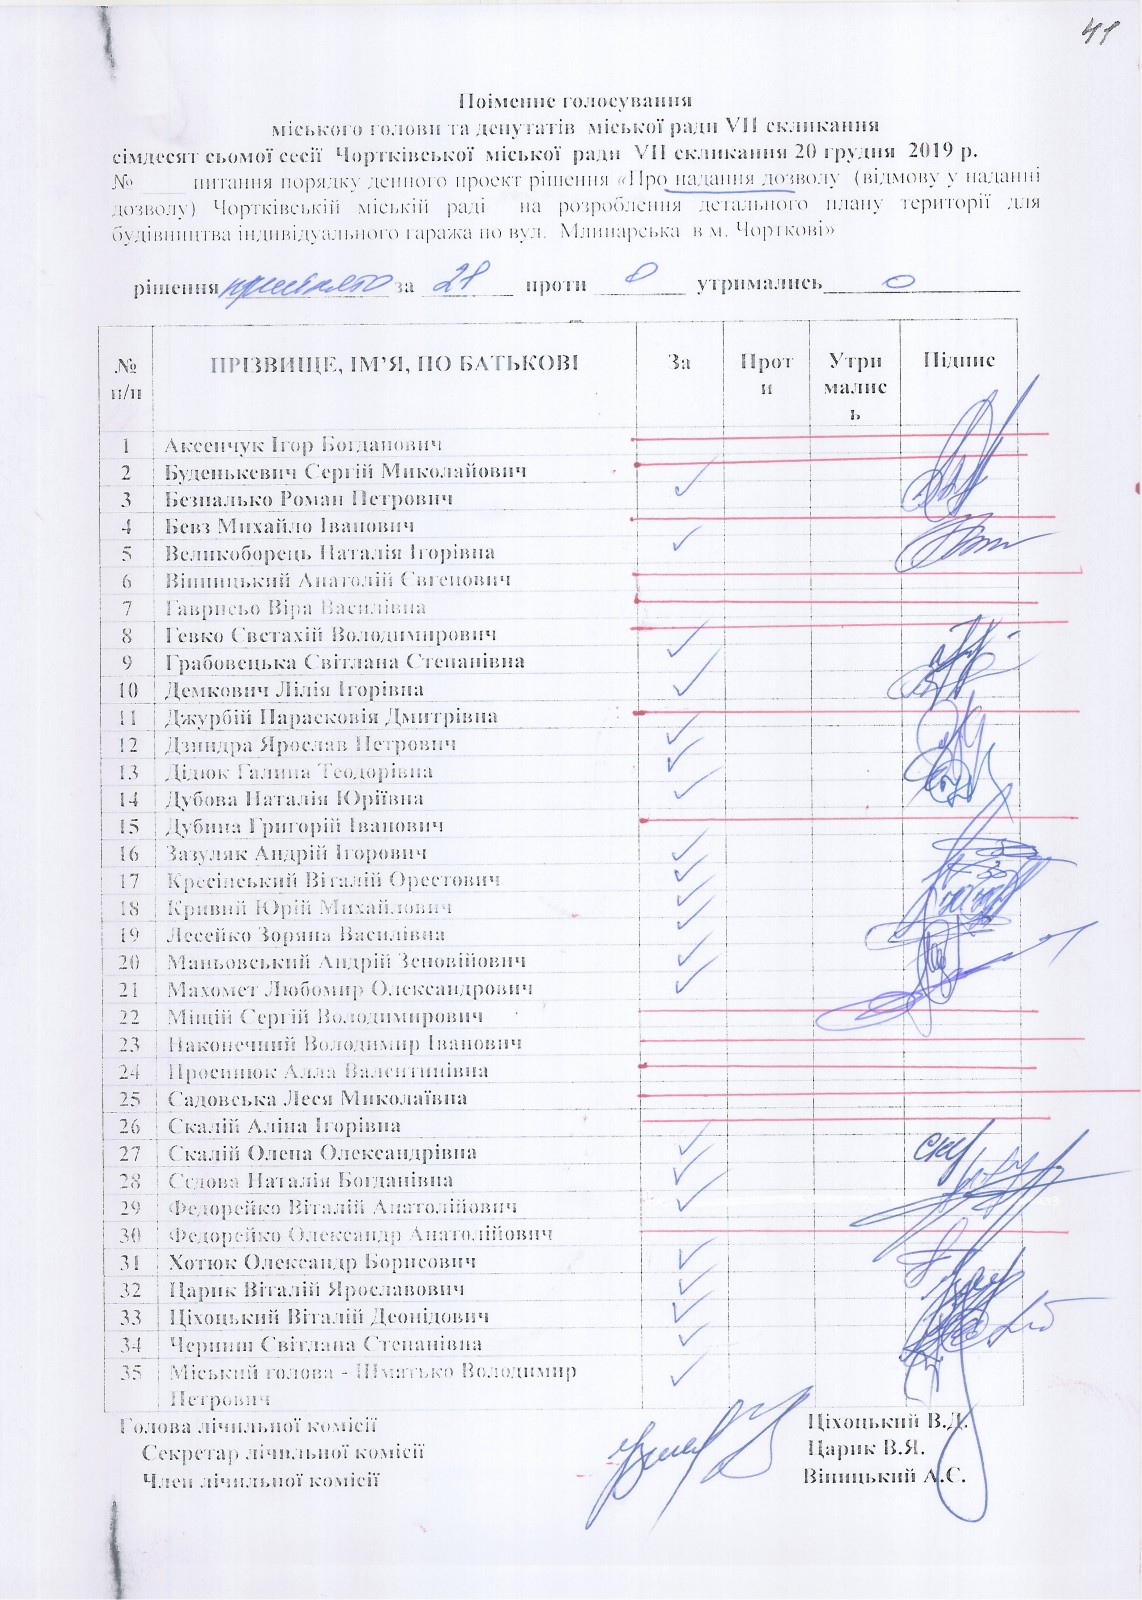 41
Поіменне голосування
міського голови та депутатів міської ради VII скликання
сімдесят сьомої сесії Чортківської міської ради VII скликання 20 грудня 2019 р.
№ ____ питання порядку денного проект рішення «Про надання дозволу (відмову у наданні
дозволу) Чортківській міській раді на розроблення детального плану території для
будівництва індивідуального гаража по вул. Млинарська в м. Чорткові»
рішення прийнято за 21 проти 0 утримались 0
№ п/п ПРІЗВИЩЕ, ІМ’Я, ПО БАТЬКОВІ За Проти Утрималис ь Підпис
1 Аксенчук Ігор Богданович
2 Буденькевич Сергій Миколайович
3 Безпалько Роман Петрович
4 Бевз Михайло Іванович
5 Великоборець Наталія Ігорівна
6 Вінницький Анатолій Євгенович
7 Гаврисьо Віра Василівна
8 Гевко Євстахій Володимирович
9 Грабовецька Світлана Степанівна
10 Демкович Лілія Ігорівна
11 Джурбій Парасковія Дмитрівна
12 Дзиндра Ярослав Петрович
13 Дідюк Галина Теодорівна
14 Дубова Наталія Юріївна
15 Дубина Григорій Іванович
16 Зазуляк Андрій Ігорович
17 Кресінський Віталій Орестович
18 Кривий Юрій Михайлович
19 Лесейко Зоряна Василівна
20 Маньовський Андрій Зеновійович
21 Махомет Любомир Олександрович
22 Міщій Сергій Володимирович
23 Наконечний Володимир Іванович
24 Просинюк Алла Валентинівна
25 Садовська Леся Миколаївна
26 Скалій Аліна Ігорівна
27 Скалій Олена Олександрівна
28 Сєдова Наталія Богданівна
29 Федорейко Віталій Анатолійович
30 Федорейко Олександр Анатолійович
31 Хотюк Олександр Борисович
32 Царик Віталій Ярославович
33 Ціхоцький Віталій Деонідович
34 Чершиш Світлана Степанівна
35 Міський голова - Шматько Володимир
Петрович
Голова лічильної комісії Ціхоцький В.Д.
Секретар лічильної комісії Царик В.Я.
Член лічильної комісії Вінницький А.Є.